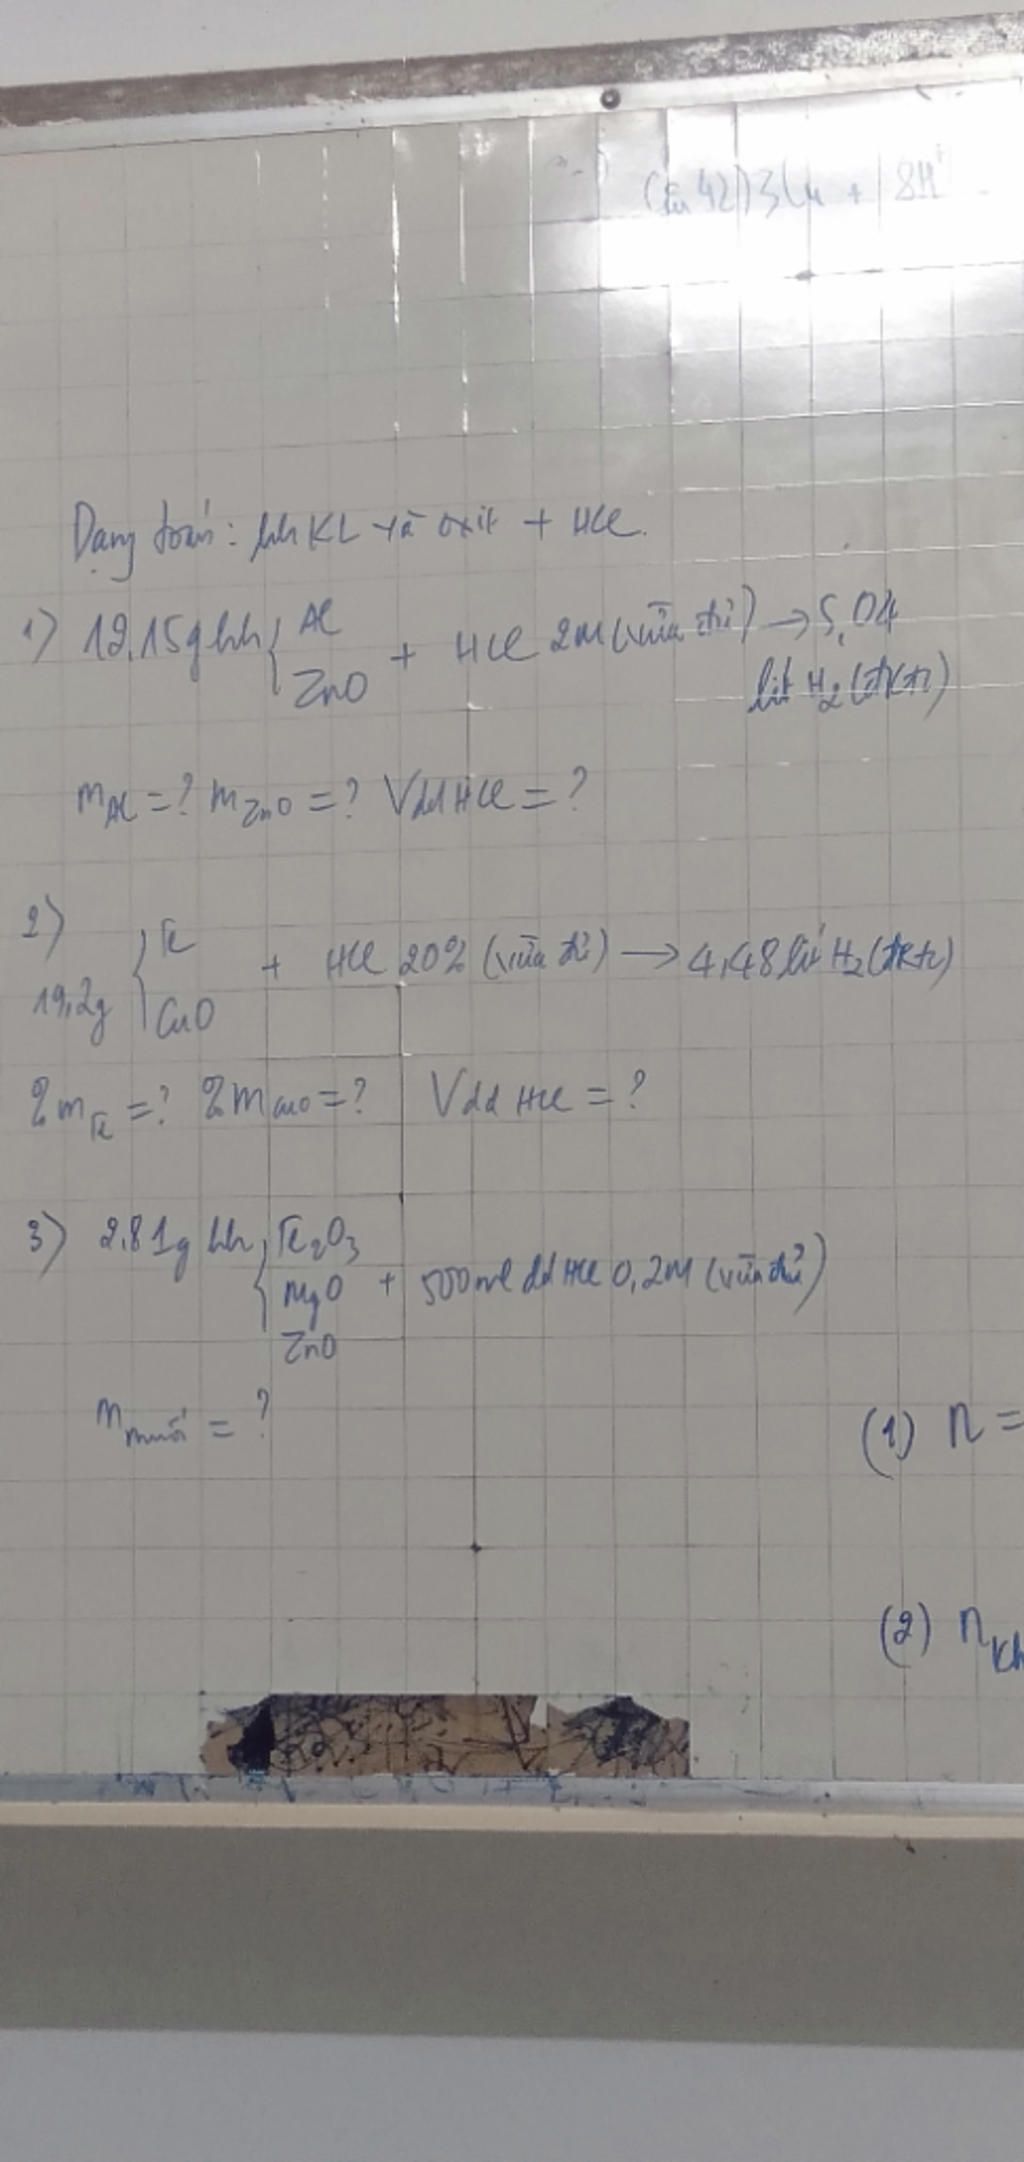 3Cu + 8H⁺
Dạng toán: hh KL và oxit + HCl.
1) 12,15g hh { Al
ZnO + HCl 2M (vừa đủ) → 5,04
lít H₂ (đktc)
mAl = ? mZnO = ? Vdd HCl = ?
2)
19,2g { Fe
CuO + HCl 20% (vừa đủ) → 4,48 lít H₂ (đktc)
%mFe = ? %mCuO = ? Vdd HCl = ?
3) 2,81g hh { Fe₂O₃
MgO + 500ml dd HCl 0,2M (vừa đủ)
ZnO
mmuối = ?
(1) n =
(2) nkh